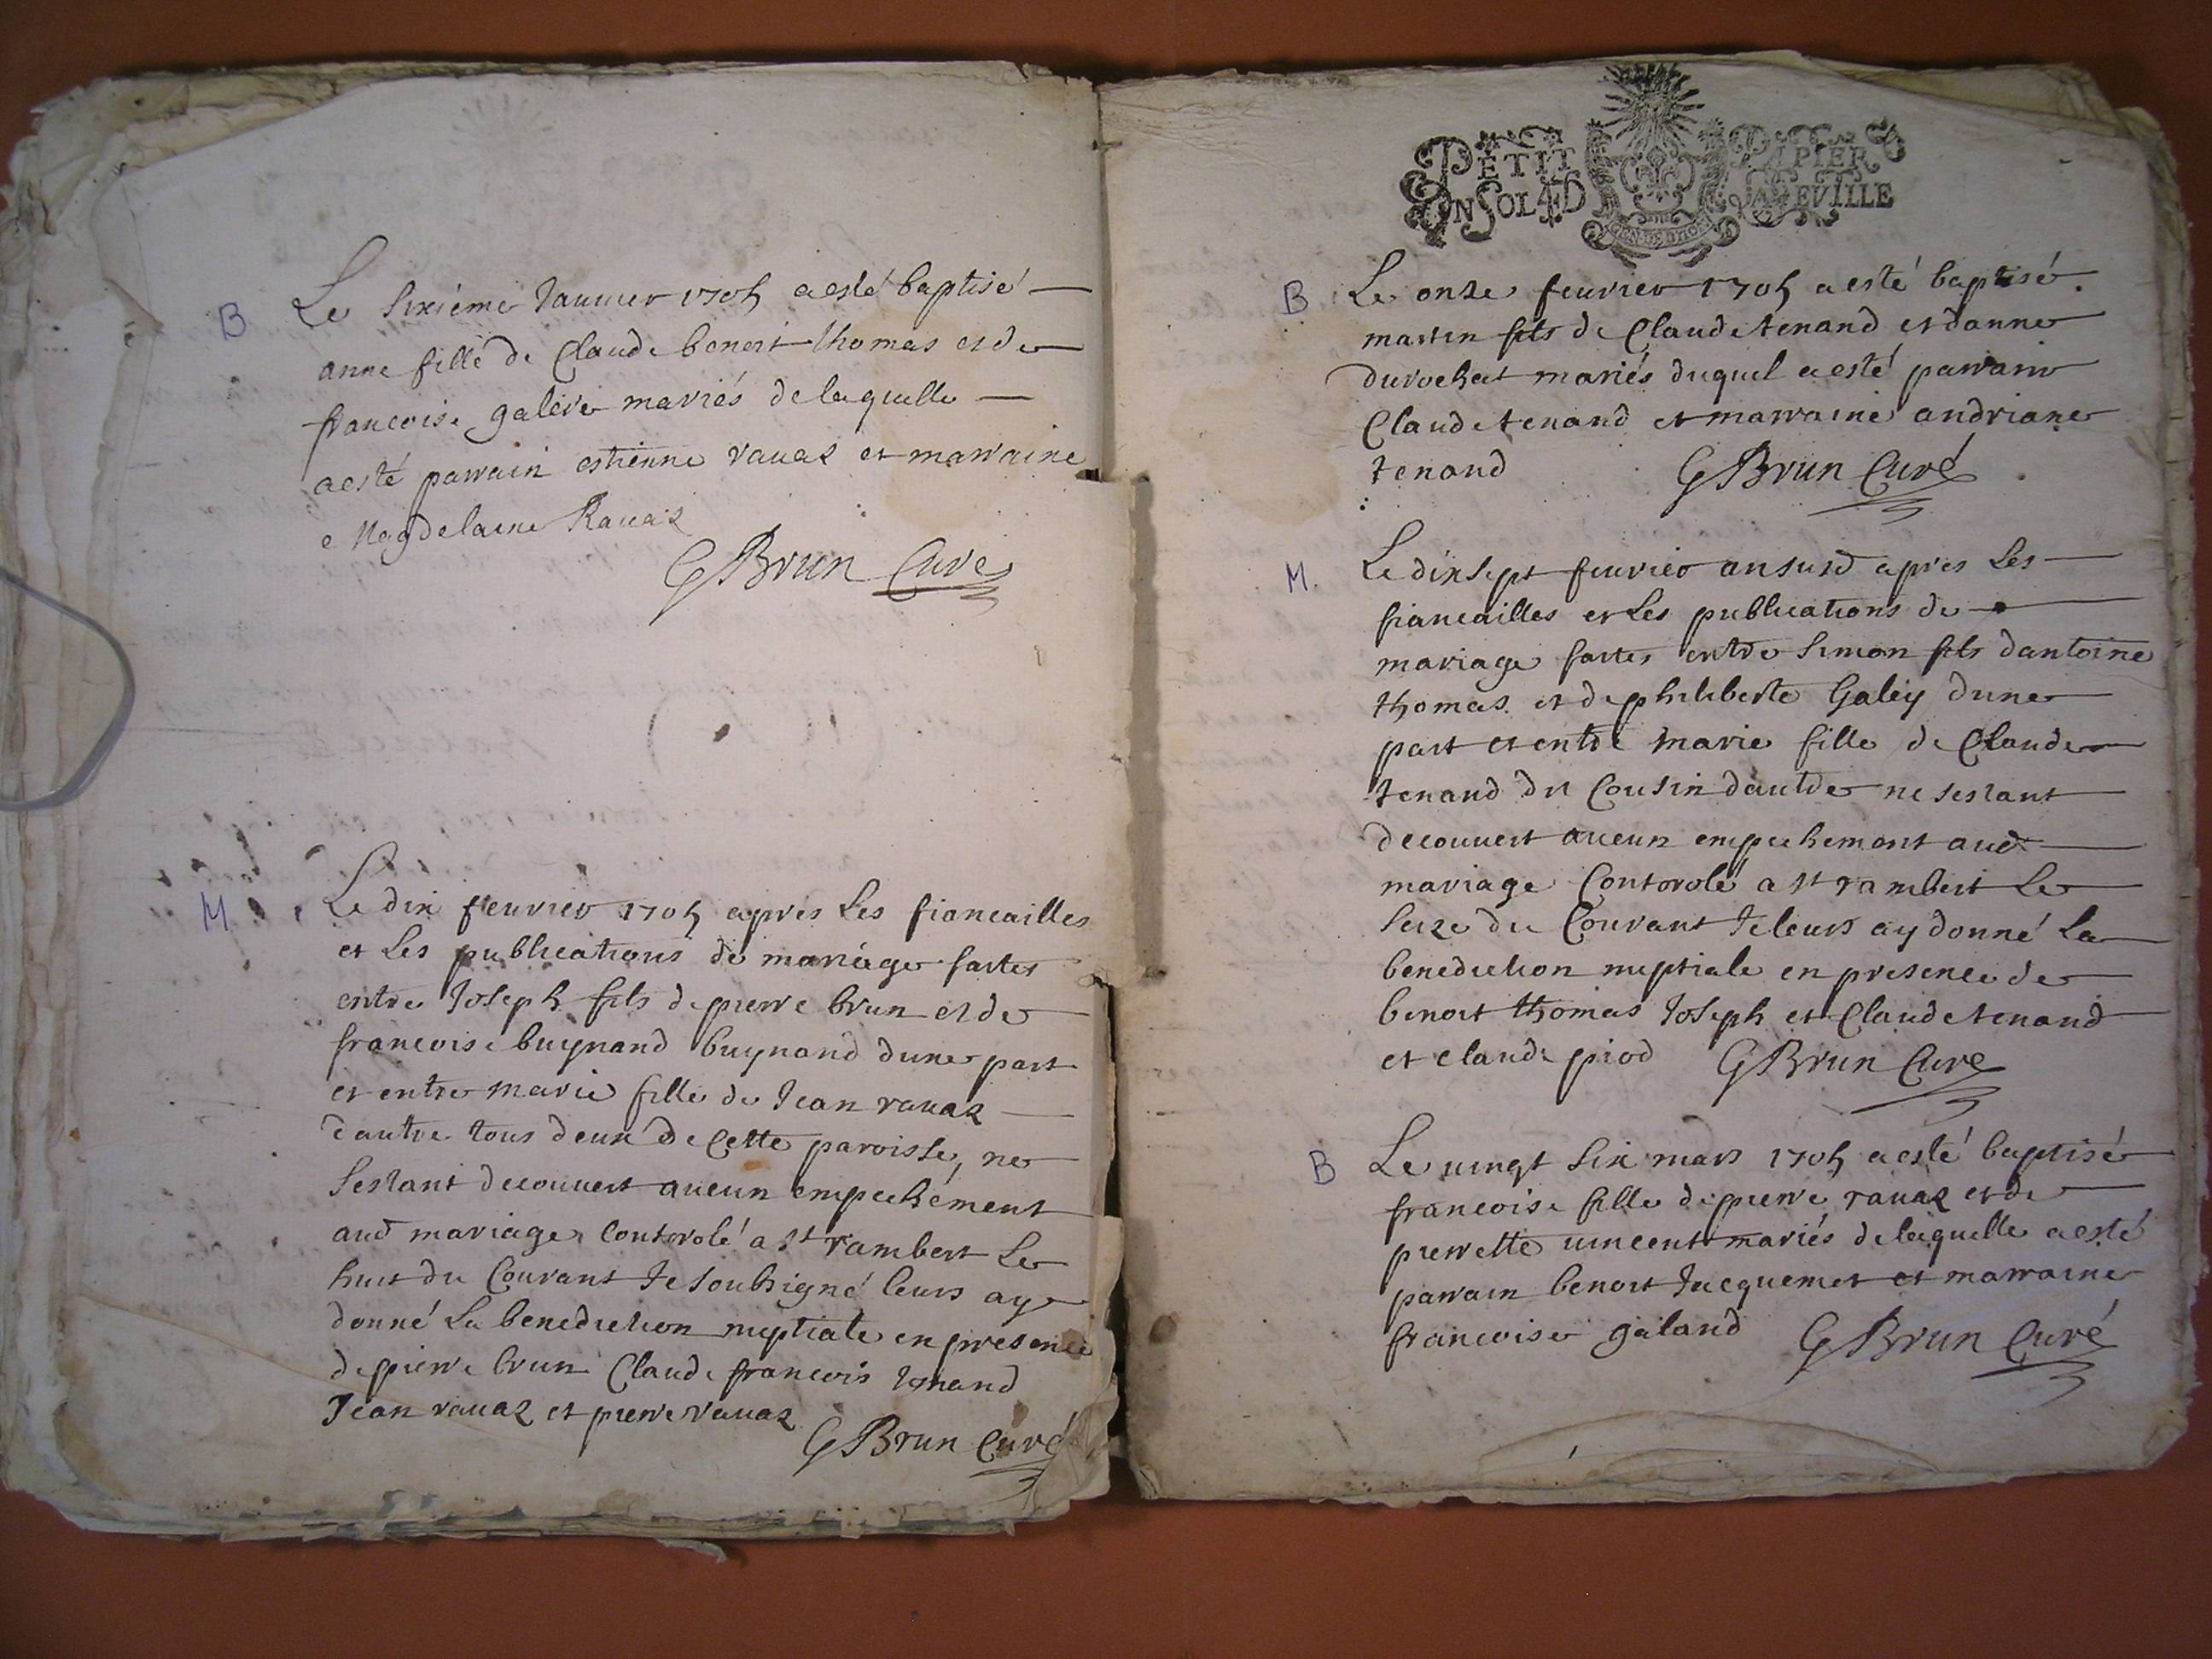 B
Le sixiéme Januier 1705 a esté baptisé
anne fille de Claude benoit thomas et de
francoise galere mariés de laquelle
a esté parrain estienne rauaz et marraine
e Magdelaine Rauaz
G Brun Curé
M.
Le dix feurier 1705 apres Les fiancailles
et Les publications de mariage faites
entre Joseph fils de pierre brun et de
francoise buynand buynand dune part
et entre marie fille de Jean rauaz
dautre tous deux de Cette paroisse, ne
sestant decouuert aucun empechement
aud mariage, Controlé a st rambert Le
huit du Courant Je soubsigné leurs ay
donné La benediction nuptiale en presence
de pierre brun Claude francois tenand
Jean rauaz et pierre rauaz
G Brun Curé
PETIT PAPIER
UN SOL 4 D LA FEVILLE
B
Le onze feurier 1705 a esté baptisé
martin fils de Claude tenand et danne
durochat mariés duquel a esté parrain
Claude tenand et marraine andriane
tenand G Brun Curé
M.
Le dixsept feurier an susd apres Les
fiancailles et Les publications de
mariage faites entre simon fils dantoine
thomas et de philiberte Galey dune
part et entre marie fille de Claude
tenand dit Cousin dautre ne sestant
decouuert aucun empechement aud
mariage Controlé a st rambert Le
seize du Courant Je leurs ay donné La
benediction nuptiale en presence de
benoit thomas Joseph et Claude tenand
et claude piod G Brun Curé
B
Le uingt six mars 1705 a esté baptisé
francoise fille de pierre rauaz et de
pierrette uincent mariés de laquelle a esté
parrain benoit Jacquemet et marraine
francoise galand G Brun Curé